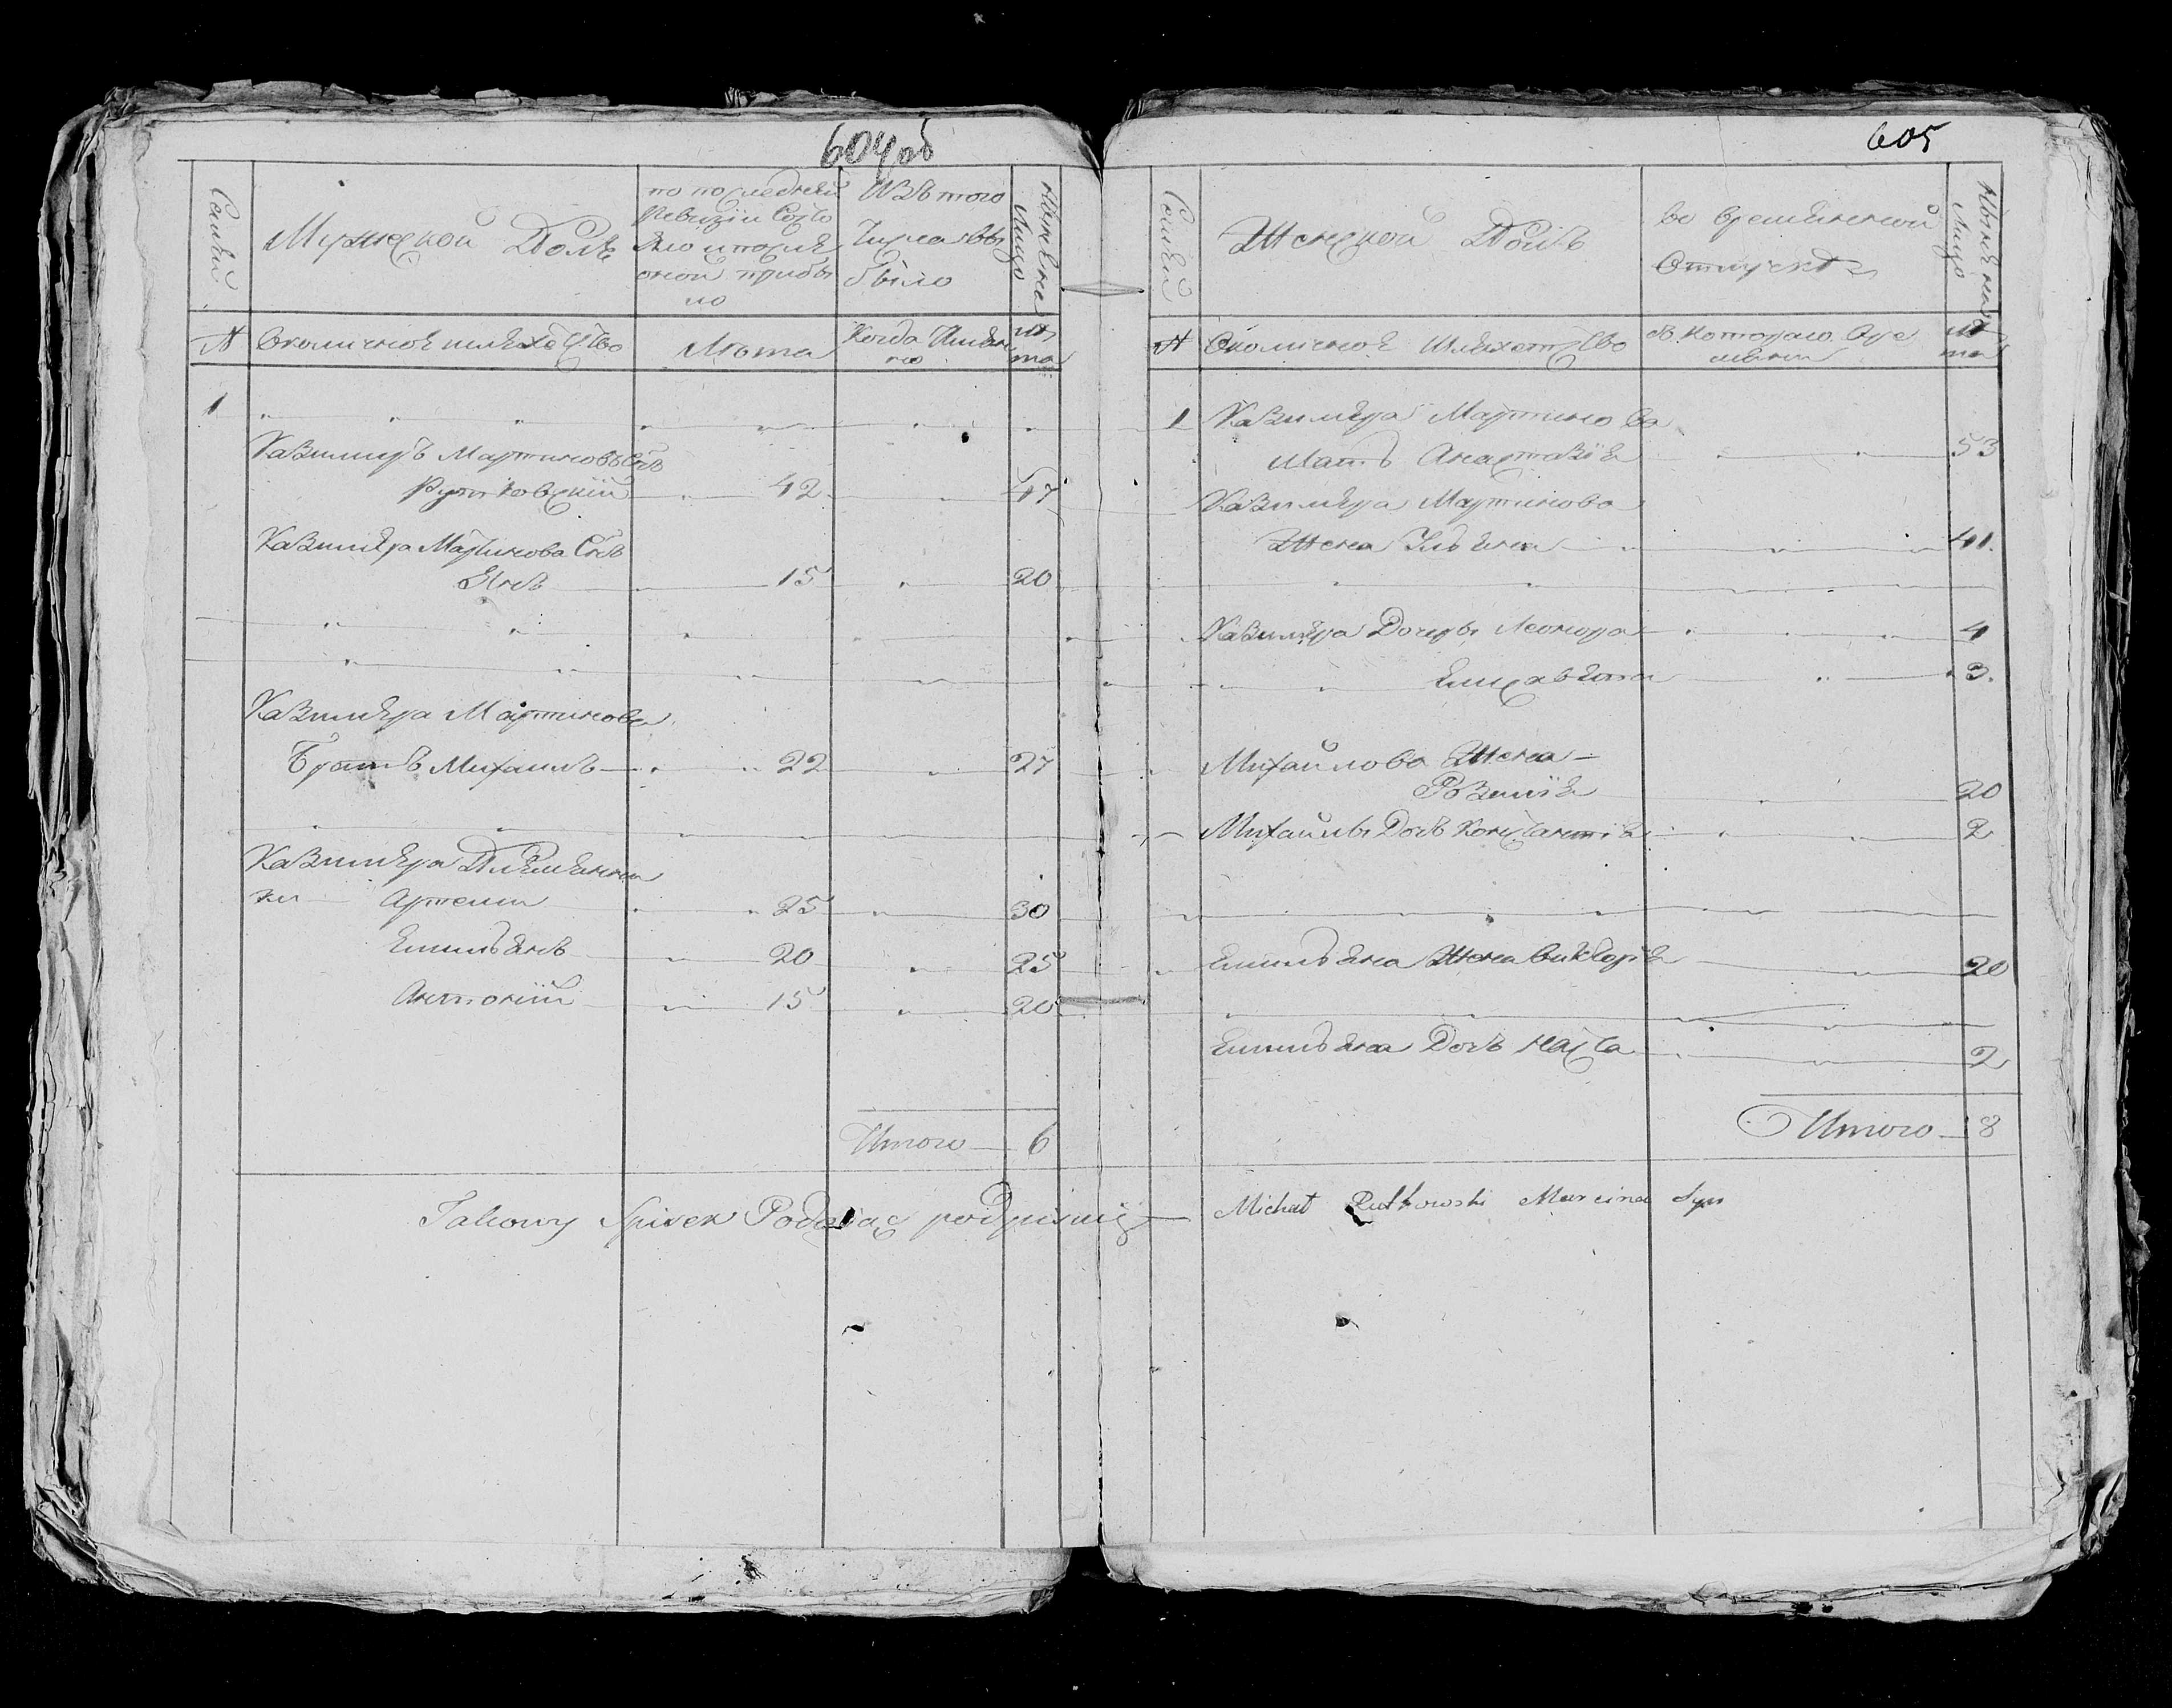 604 об
Семьи
Мужеской Полъ
по последней
Ревизіи Состо
яло и после
оной прибы
ло
Изъ того
Числа вы
было
Ныне на
Лицо
№
Околичное шляхетство
Лѣта
Когда Имян
но
лѣ
та
1
Казимиръ Мартиновъ Сынъ
Рутковскій 42 47
Казимера Мартинова Сынъ
Янъ 15 20
Казимера Мартинова
Братъ Михаилъ 22 27
Казимера Племянни
ки Артеми 25 30
Емильянъ 20 25
Антоній 15 20
Итого 6
Takowy Spisek Podaiąc podpisuię
605
Семьи
Женской Полъ
во временной
Отлучке
Ныне на
Лицо
№
Околичное шляхетство
съ котораго вре
мени
лѣ
та
1 Казимера Мартинова
мать Анастазія 53
Казимера Мартинова
Жена Ульяна 41
Казимера Дочеры Леонора 4
Елисавета 3
Михайлова Жена
Розалія 20
Михайлы Дочь Констанція 2
Емильяна Жена Викторія 20
Емильяна Дочь Наста 2
Итого 8
Michał Rutkowski Marcina Syn